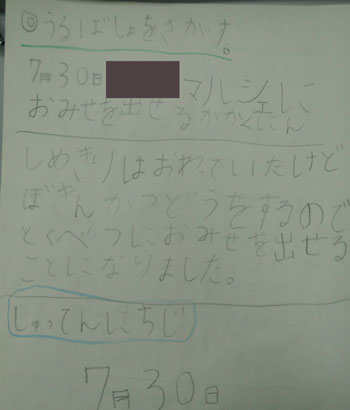 ◎うるばしょをさがす。
7月30日 マルシェに
おみせを出せるかかくにん
しめきりはおわっていたけど
ぼきんかつどうをするので
とくべつにおみせを出せる
ことになりました。
しゅってんにちじ
7月30日